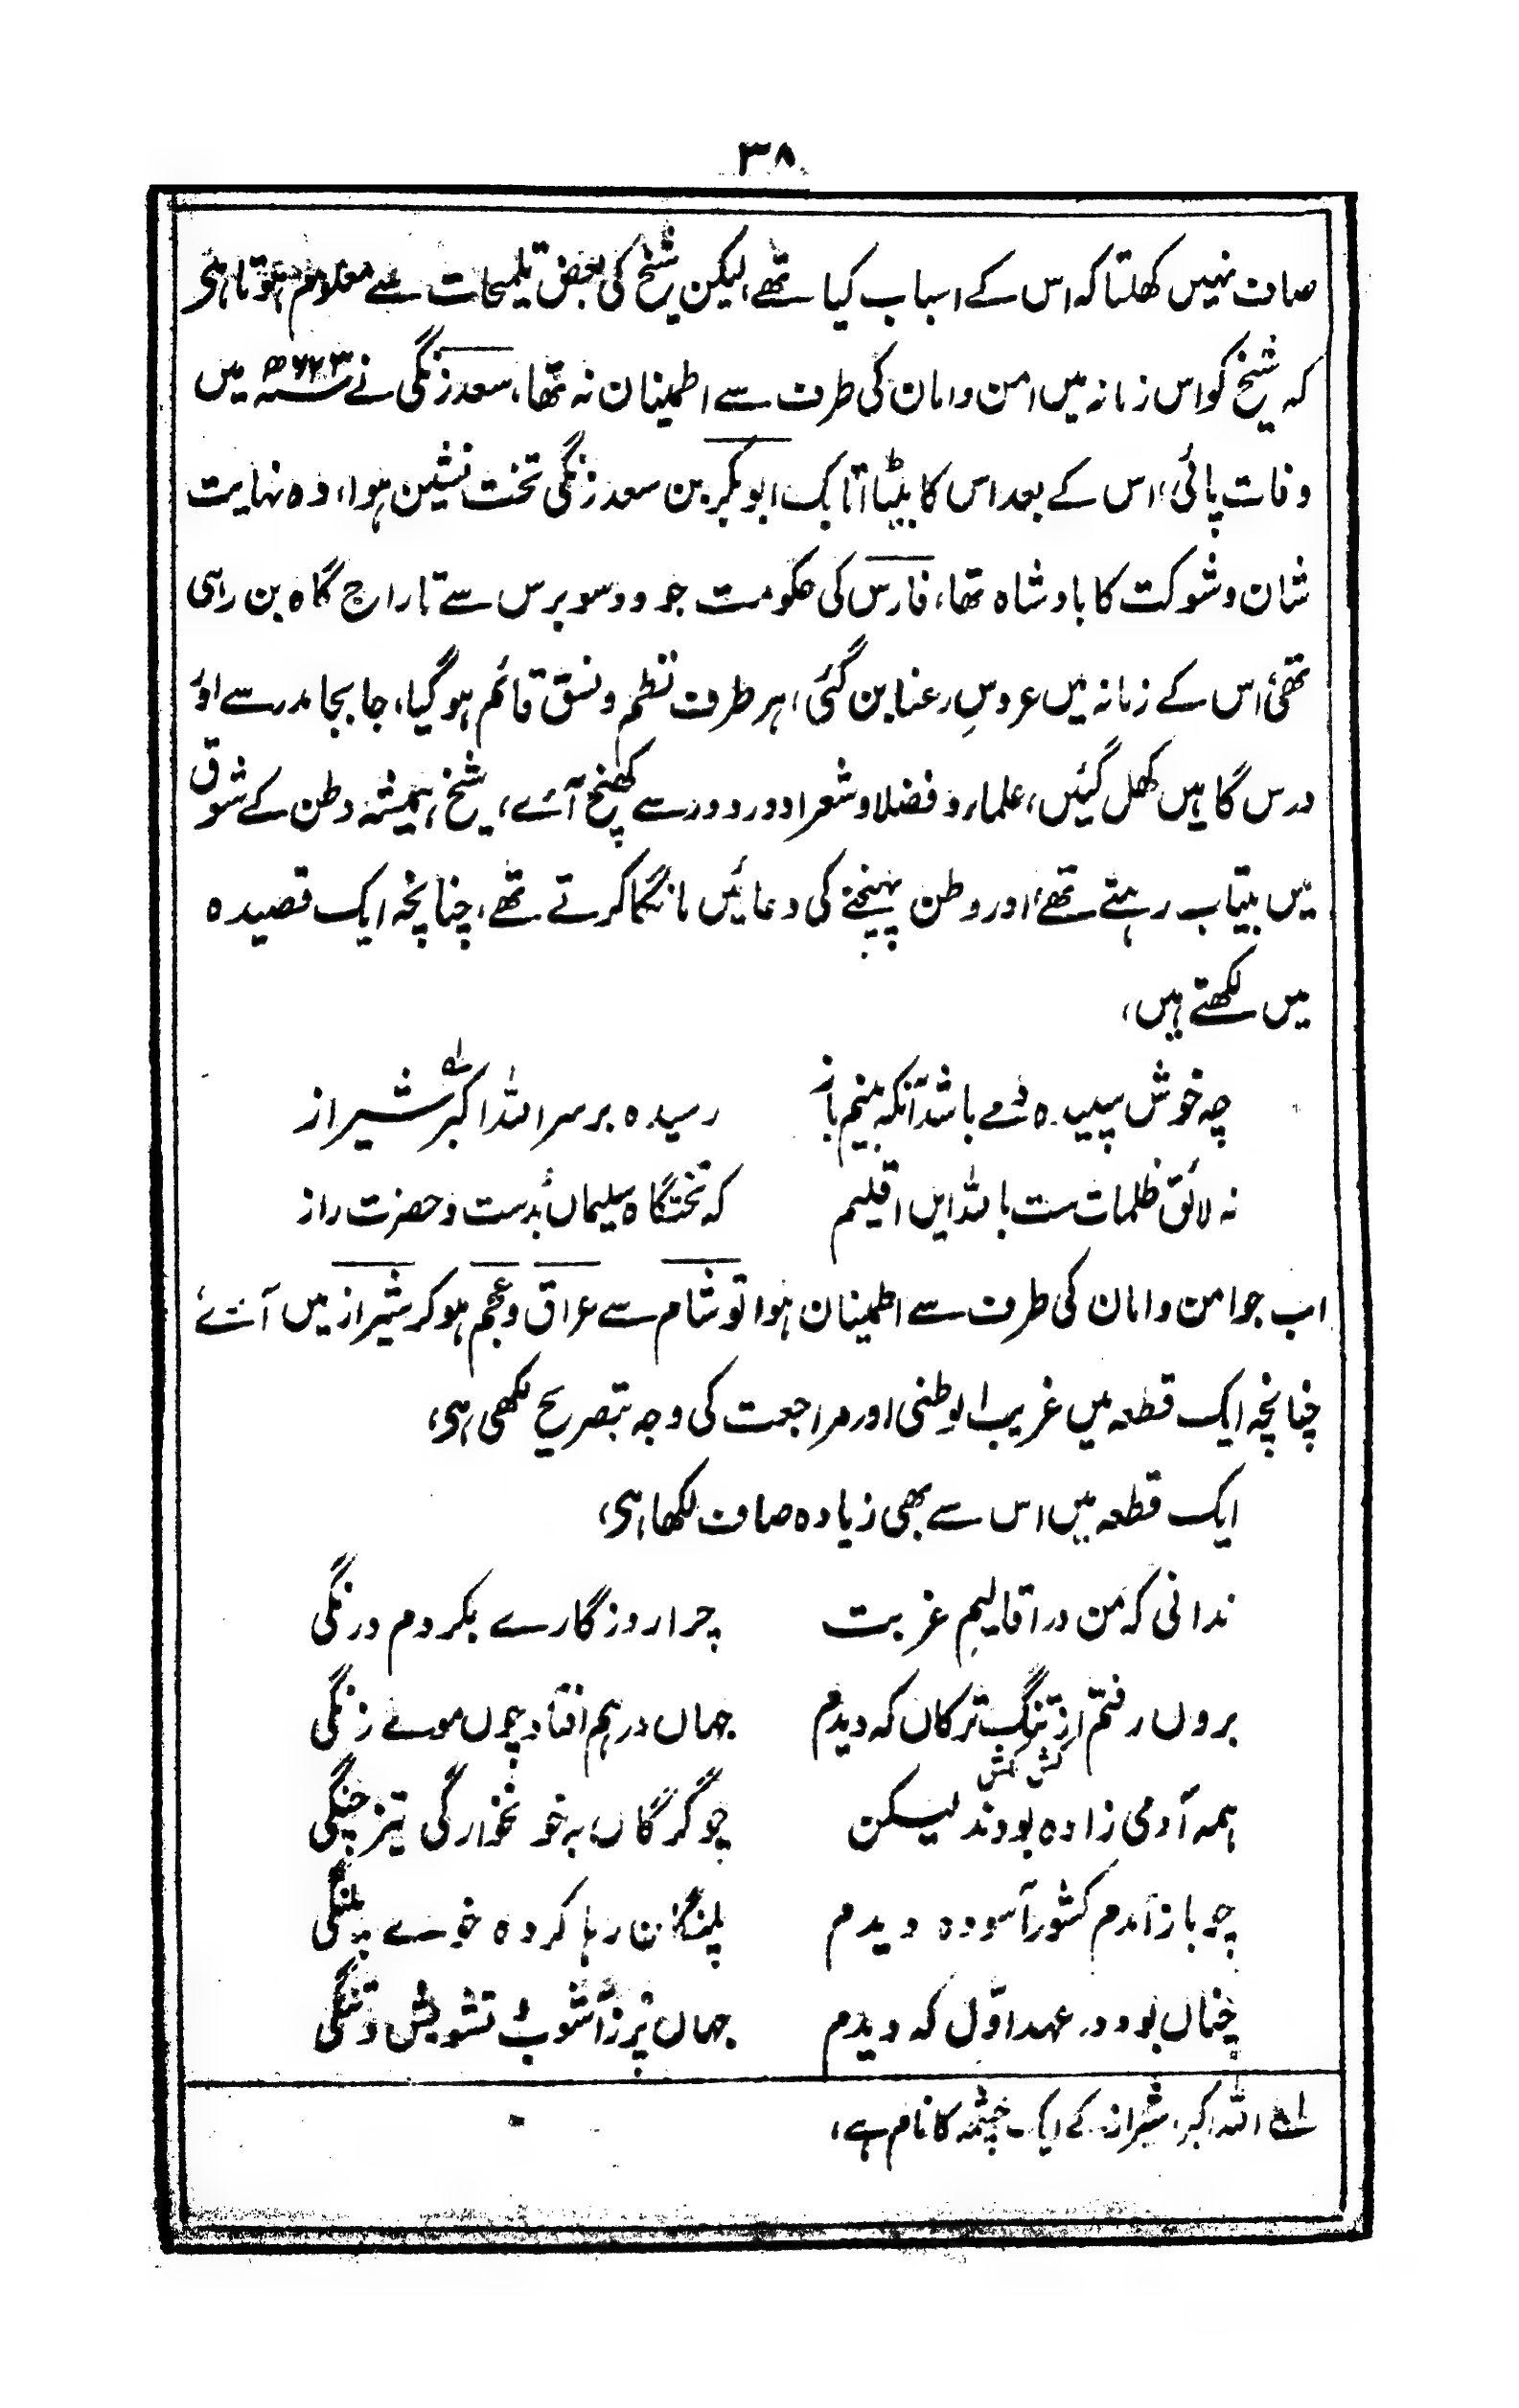 ۳۸
صاف نہیں کھلتا کہ اس کے اسباب کیا تھے، لیکن شیخ کی بعض تلمیحات سے معلوم ہوتا ہی
کہ شیخ کو اس زمانہ میں امن و امان کی طرف سے اطمینان نہ تھا، سعد زنگی نے ۶۲۳ھ میں
وفات پائی، اس کے بعد اس کا بیٹا اتابک ابوبکر بن سعد زنگی تخت نشین ہوا، وہ نہایت
شان و شوکت کا بادشاہ تھا، فارس کی حکومت جو دو سو برس سے تاراج گاہ بن رہی
تھی، اس کے زمانہ میں عروسِ رعنا بن گئی، ہر طرف نظم و نسق قائم ہو گیا، جا بجا مدرسے اور
درس گاہیں کھل گئیں، علماء و فضلا و شعرا دور دور سے کھنچ آئے، شیخ ہمیشہ وطن کے شوق
میں بیتاب رہتے تھے، اور وطن پہنچنے کی دعائیں مانگا کرتے تھے، چنانچہ ایک قصیدہ
میں لکھتے ہیں،
چہ خوش سپیدہ دمے باشد آنکہ بینم باز رسیدہ بر سر اللہ اکبر لہ شیراز
نہ لائق ظلمات ست باللہ ایں اقلیم کہ تختگاہ سلیماں بدست و حضرت راز
اب جو امن و امان کی طرف سے اطمینان ہوا تو شام سے عراق و عجم ہو کر شیراز میں آئے
چنانچہ ایک قطعہ میں غریب الوطنی اور مراجعت کی وجہ بتصریح لکھی ہی،
ایک قطعہ میں اس سے بھی زیادہ صاف لکھا ہی،
ندانی کہ من در اقالیمِ غربت چرا روزگارے بکردم درنگی
بروں رفتم از تنگ ترکاں کہ دیدم جہاں درہم افتاد چوں موے زنگی
کش مکش
ہمہ آدمی زادہ بودند لیکن چو گرگاں بہ خونخوارگی تیز چنگی
چو باز آمدم کشور آسودہ دیدم پلنگان رہا کردہ خوے پلنگی
چناں بود در عہد اوّل کہ دیدم جہاں پُر ز آشوب و تشویش و تنگی
لہ اللہ اکبر، شیراز کے ایک چشمہ کا نام ہے،